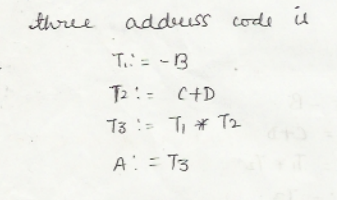 three address code is
T1:= -B
T2:= C+D
T3:= T1 * T2
A:= T3